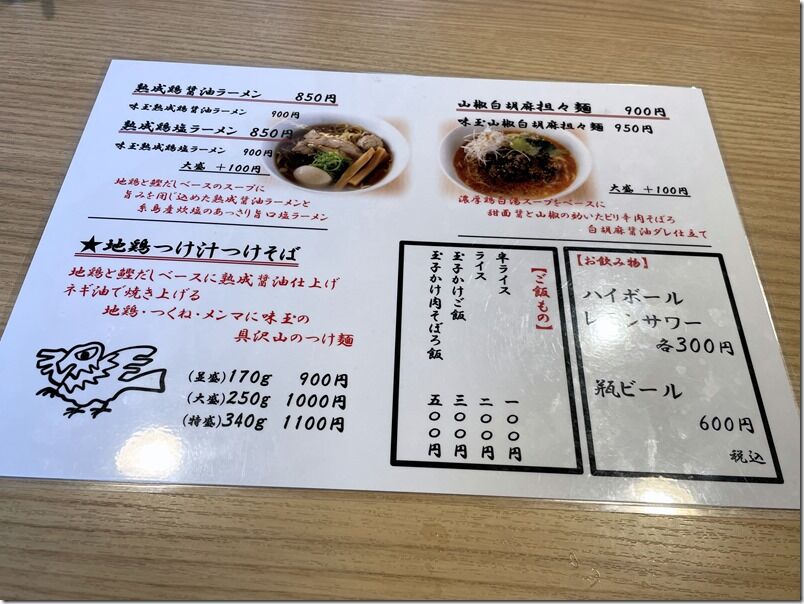 熟成鶏醤油ラーメン 850円
味玉熟成鶏醤油ラーメン 900円
熟成鶏塩ラーメン 850円
味玉熟成鶏塩ラーメン 900円
大盛 +100円
地鶏と鰹だしベースのスープに
旨みを閉じ込めた熟成醤油ラーメンと
糸島産炊塩のあっさり旨口塩ラーメン
山椒白胡麻担々麺 900円
味玉山椒白胡麻担々麺 950円
大盛 +100円
濃厚鶏白湯スープをベースに
甜面醤と山椒の効いたピリ辛肉そぼろ
白胡麻醤油ダレ仕立て
★地鶏つけ汁つけそば
地鶏と鰹だしベースに熟成醤油仕上げ
ネギ油で焼き上げる
地鶏・つくね・メンマに味玉の
具沢山のつけ麺
(並盛)170g 900円
(大盛)250g 1000円
(特盛)340g 1100円
【ご飯もの】
半ライス 一〇〇円
ライス 二〇〇円
玉子かけご飯 三〇〇円
玉子かけ肉そぼろ飯 五〇〇円
【お飲み物】
ハイボール
レモンサワー
各300円
瓶ビール
600円
税込